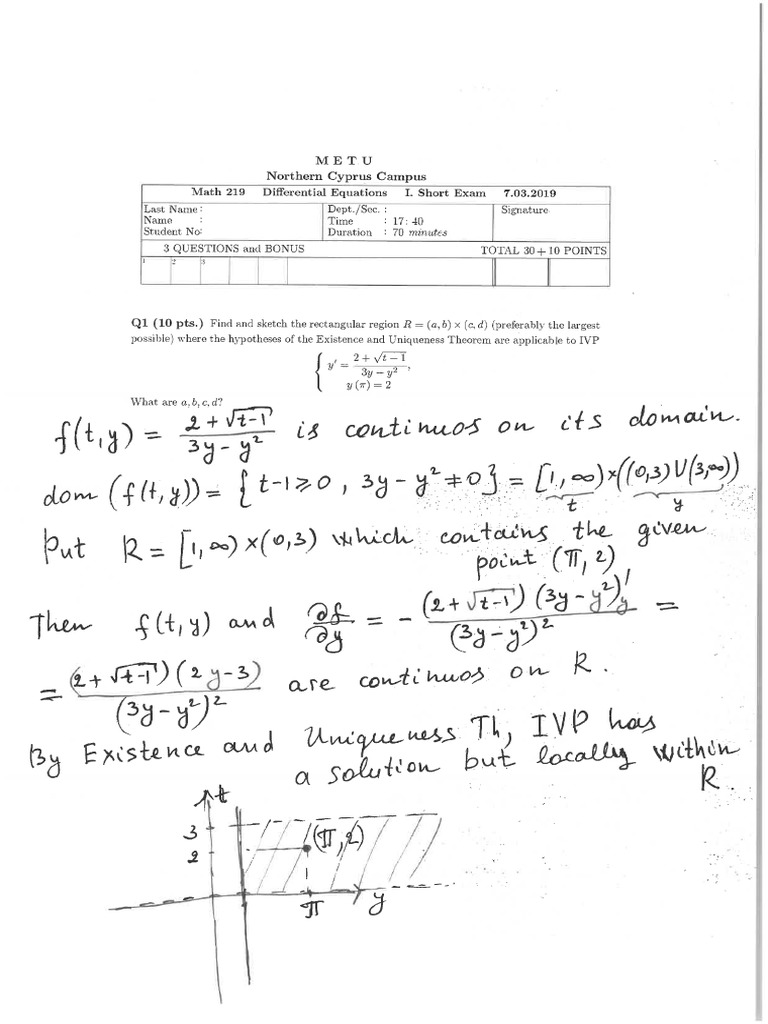 M E T U
Northern Cyprus Campus
Math 219 Differential Equations I. Short Exam 7.03.2019
Last Name : Dept./Sec. : Signature
Name : Time : 17: 40
Student No: Duration : 70 minutes
3 QUESTIONS and BONUS TOTAL 30 + 10 POINTS
1 2 3
Q1 (10 pts.) Find and sketch the rectangular region R = (a, b) × (c, d) (preferably the largest
possible) where the hypotheses of the Existence and Uniqueness Theorem are applicable to IVP
{ y′ = (2 + √(t − 1)) / (3y − y²),
y (π) = 2
What are a, b, c, d?
f(t,y) = (2 + √(t-1)) / (3y - y²) is continuos on its domain.
dom (f(t,y)) = { t-1 ≥ 0 , 3y - y² ≠ 0 } = [1, ∞) × ((0,3) ∪ (3,∞))
t y
Put R = [1, ∞) × (0,3) which contains the given
point (π, 2)
Then f(t,y) and ∂f/∂y = - (2 + √(t-1)) (3y - y²)'y / (3y - y²)² =
= (2 + √(t-1)) (2y - 3) / (3y - y²)² are continuos on R.
By Existence and Uniqueness Th, IVP has
a solution but locally within
R.
t
3 (π, 2)
2
π y